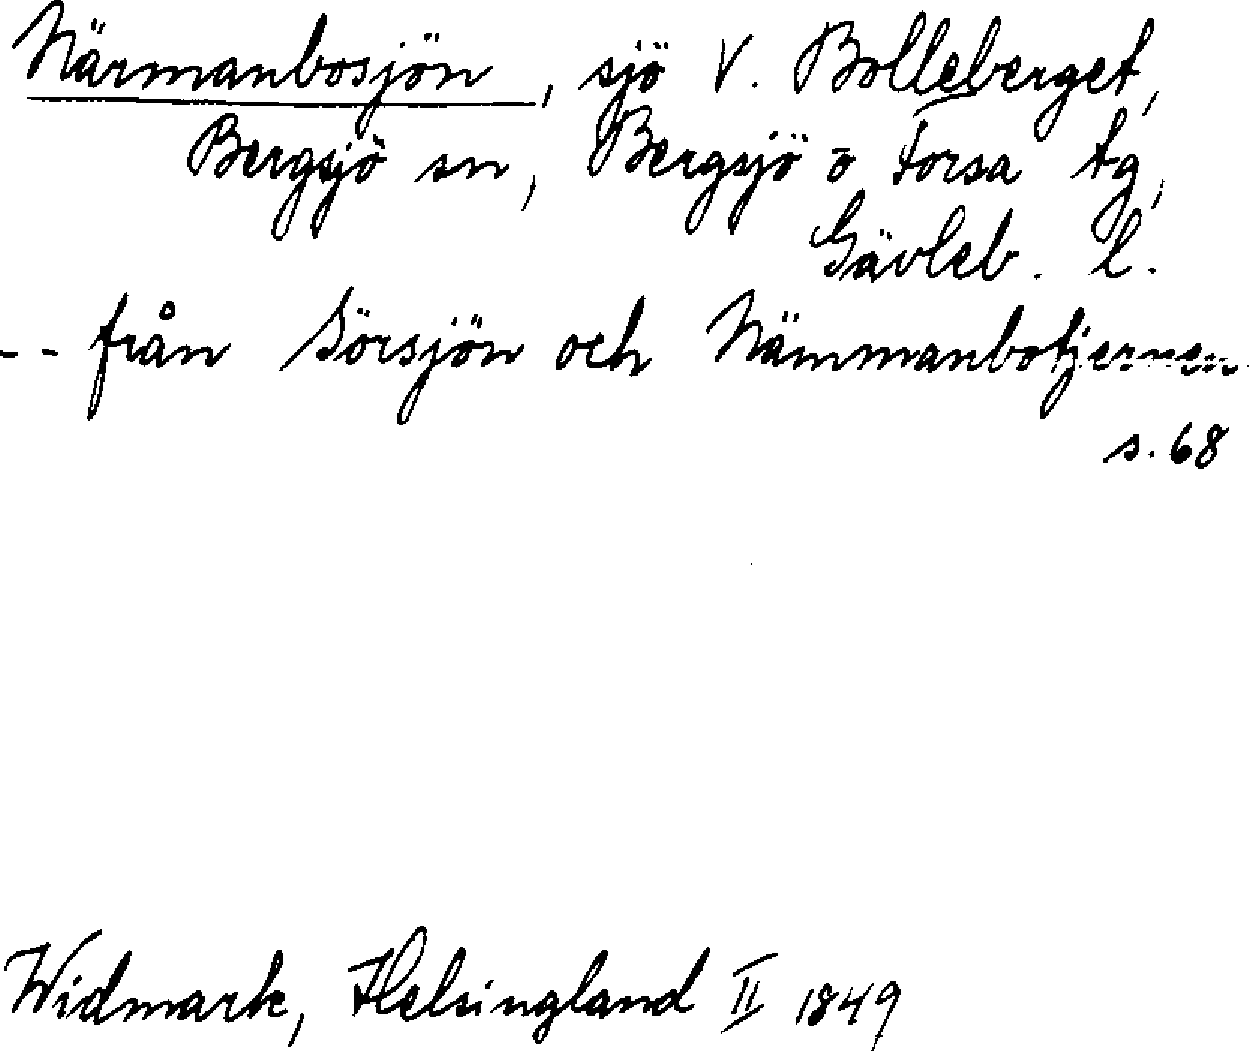 Närmanbosjön, sjö V. Bolleberget,
Bergsjö sn, Bergsjö o Forsa tg,
Gävleb. l.
-- från Sörsjön och Nämmanbotjernen
s. 68
Widmark, Helsingland II 1849